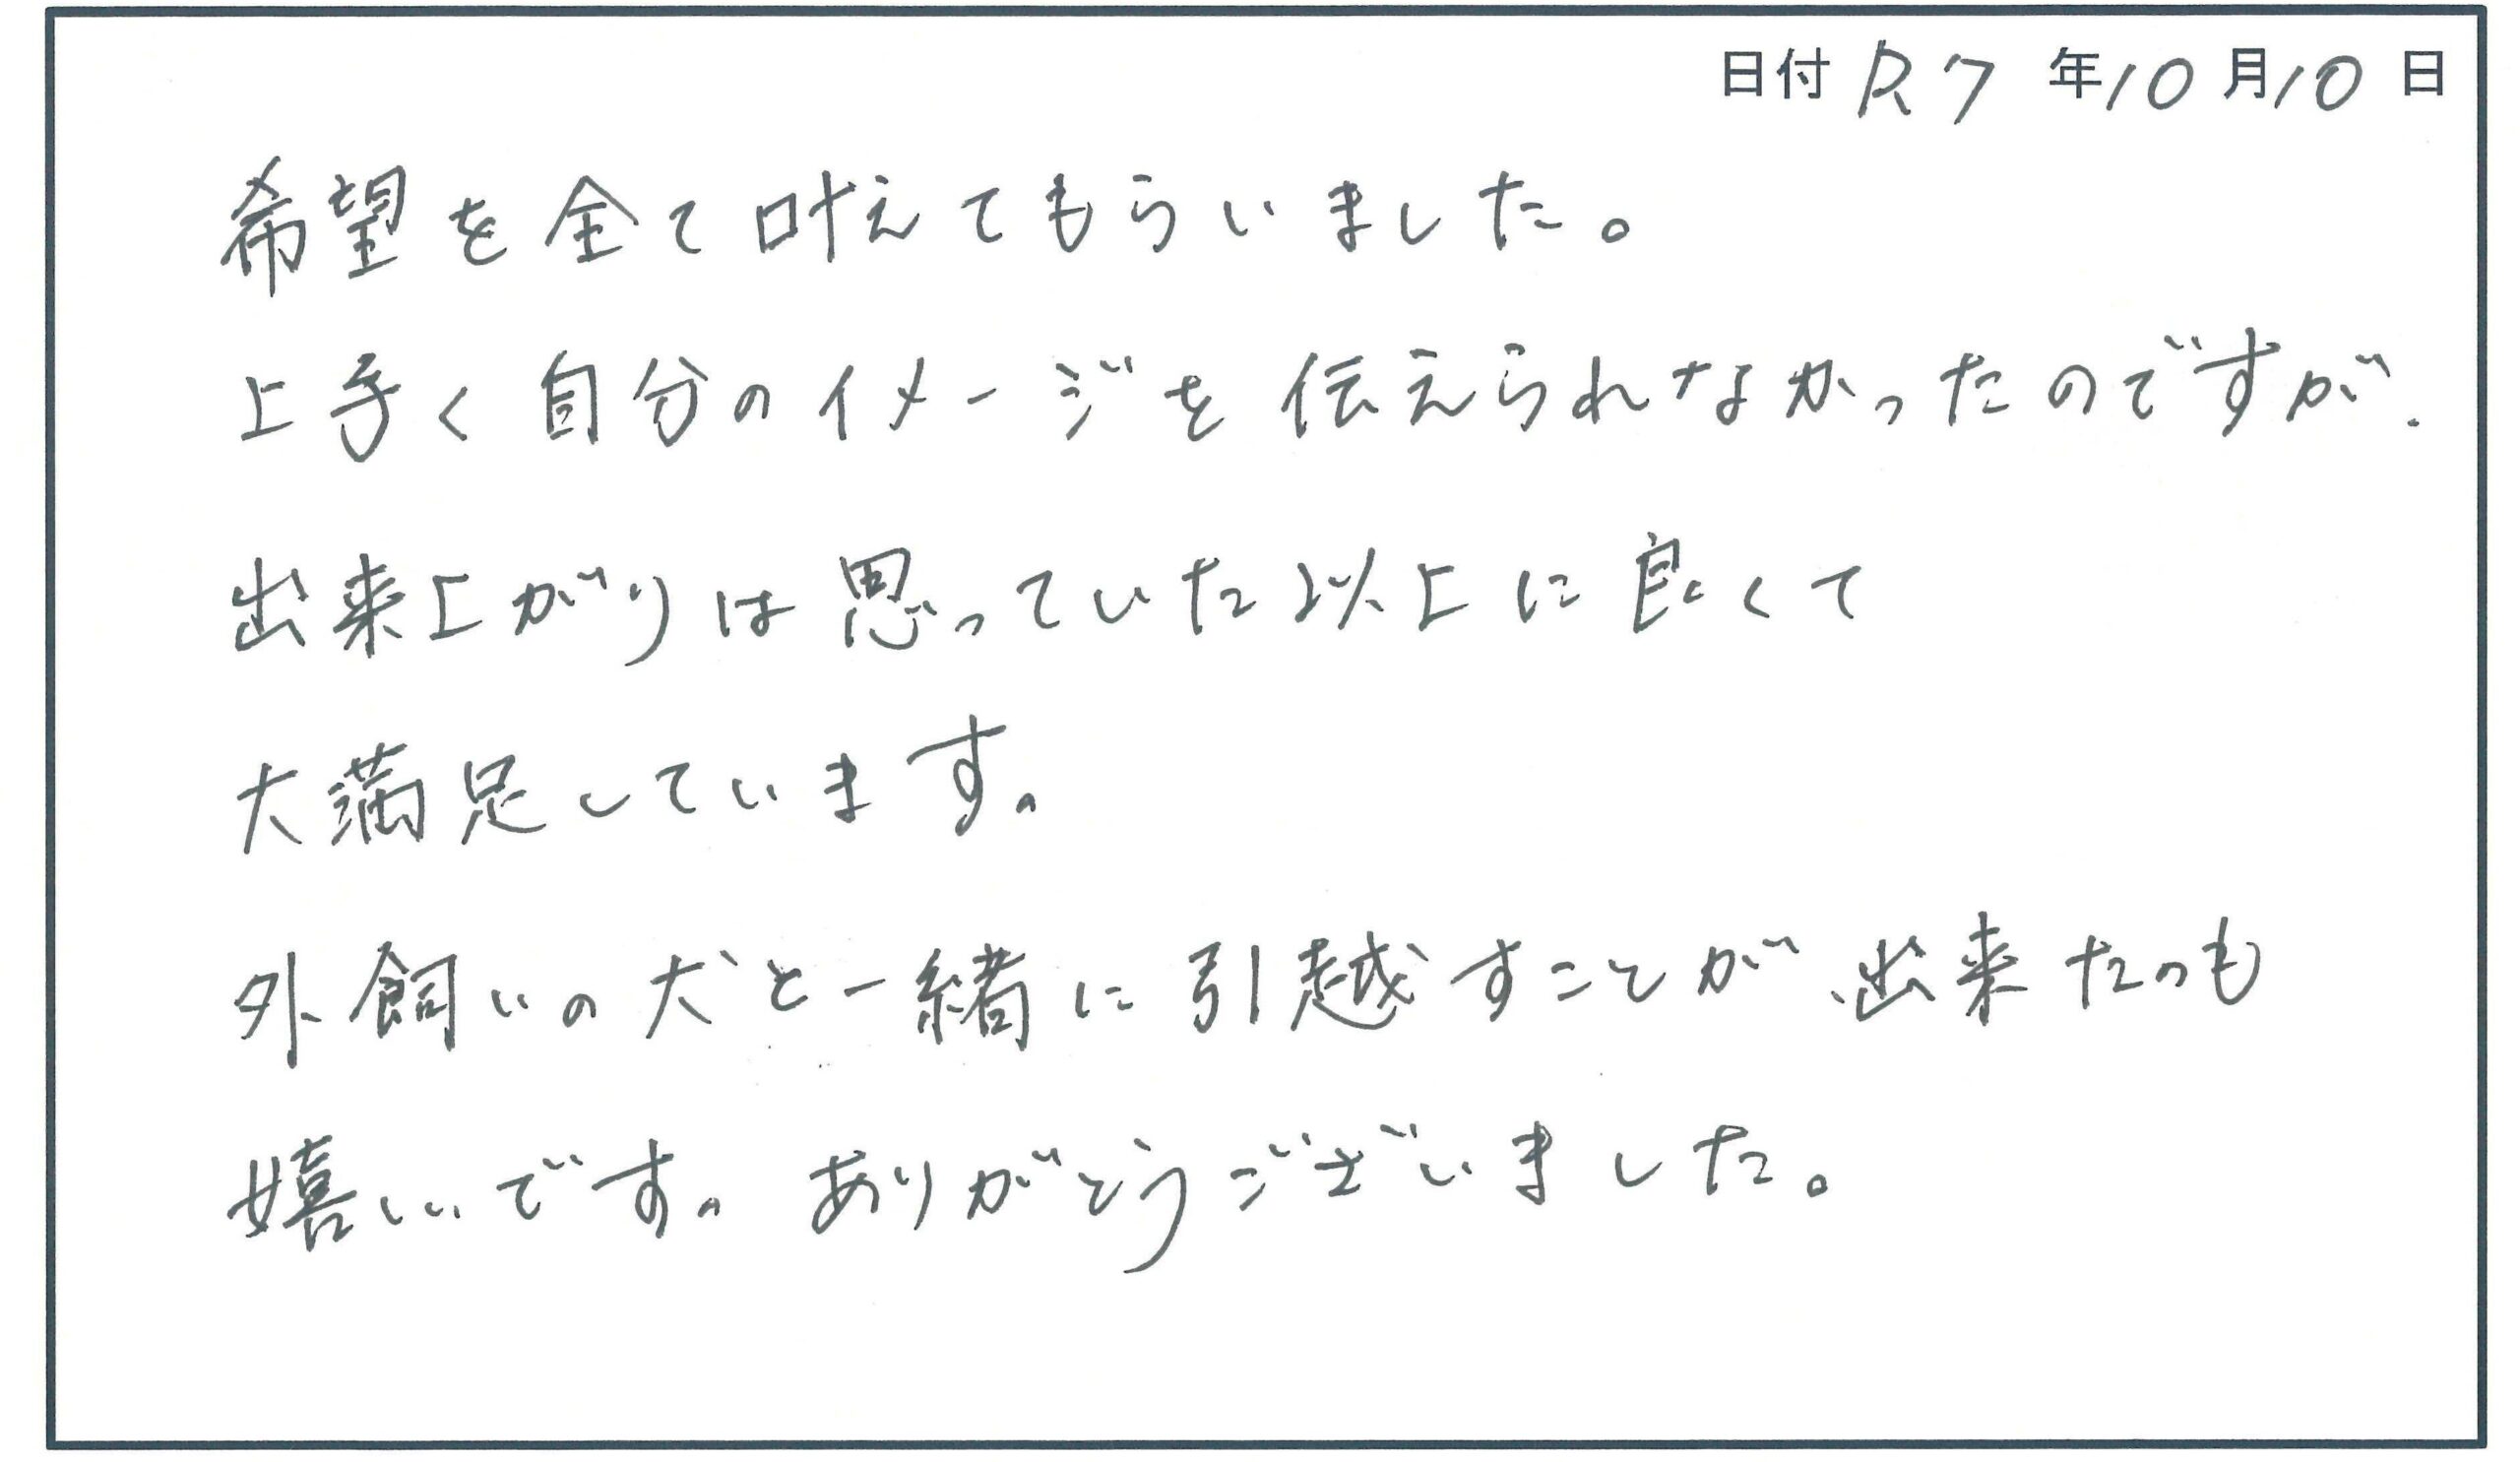 日付 R7 年 10 月 10 日
希望を全て叶えてもらいました。
上手く自分のイメージを伝えられなかったのですが、
出来上がりは思っていた以上に良くて
大満足しています。
外飼いの犬と一緒に引越すことが出来たのも
嬉しいです。ありがとうございました。